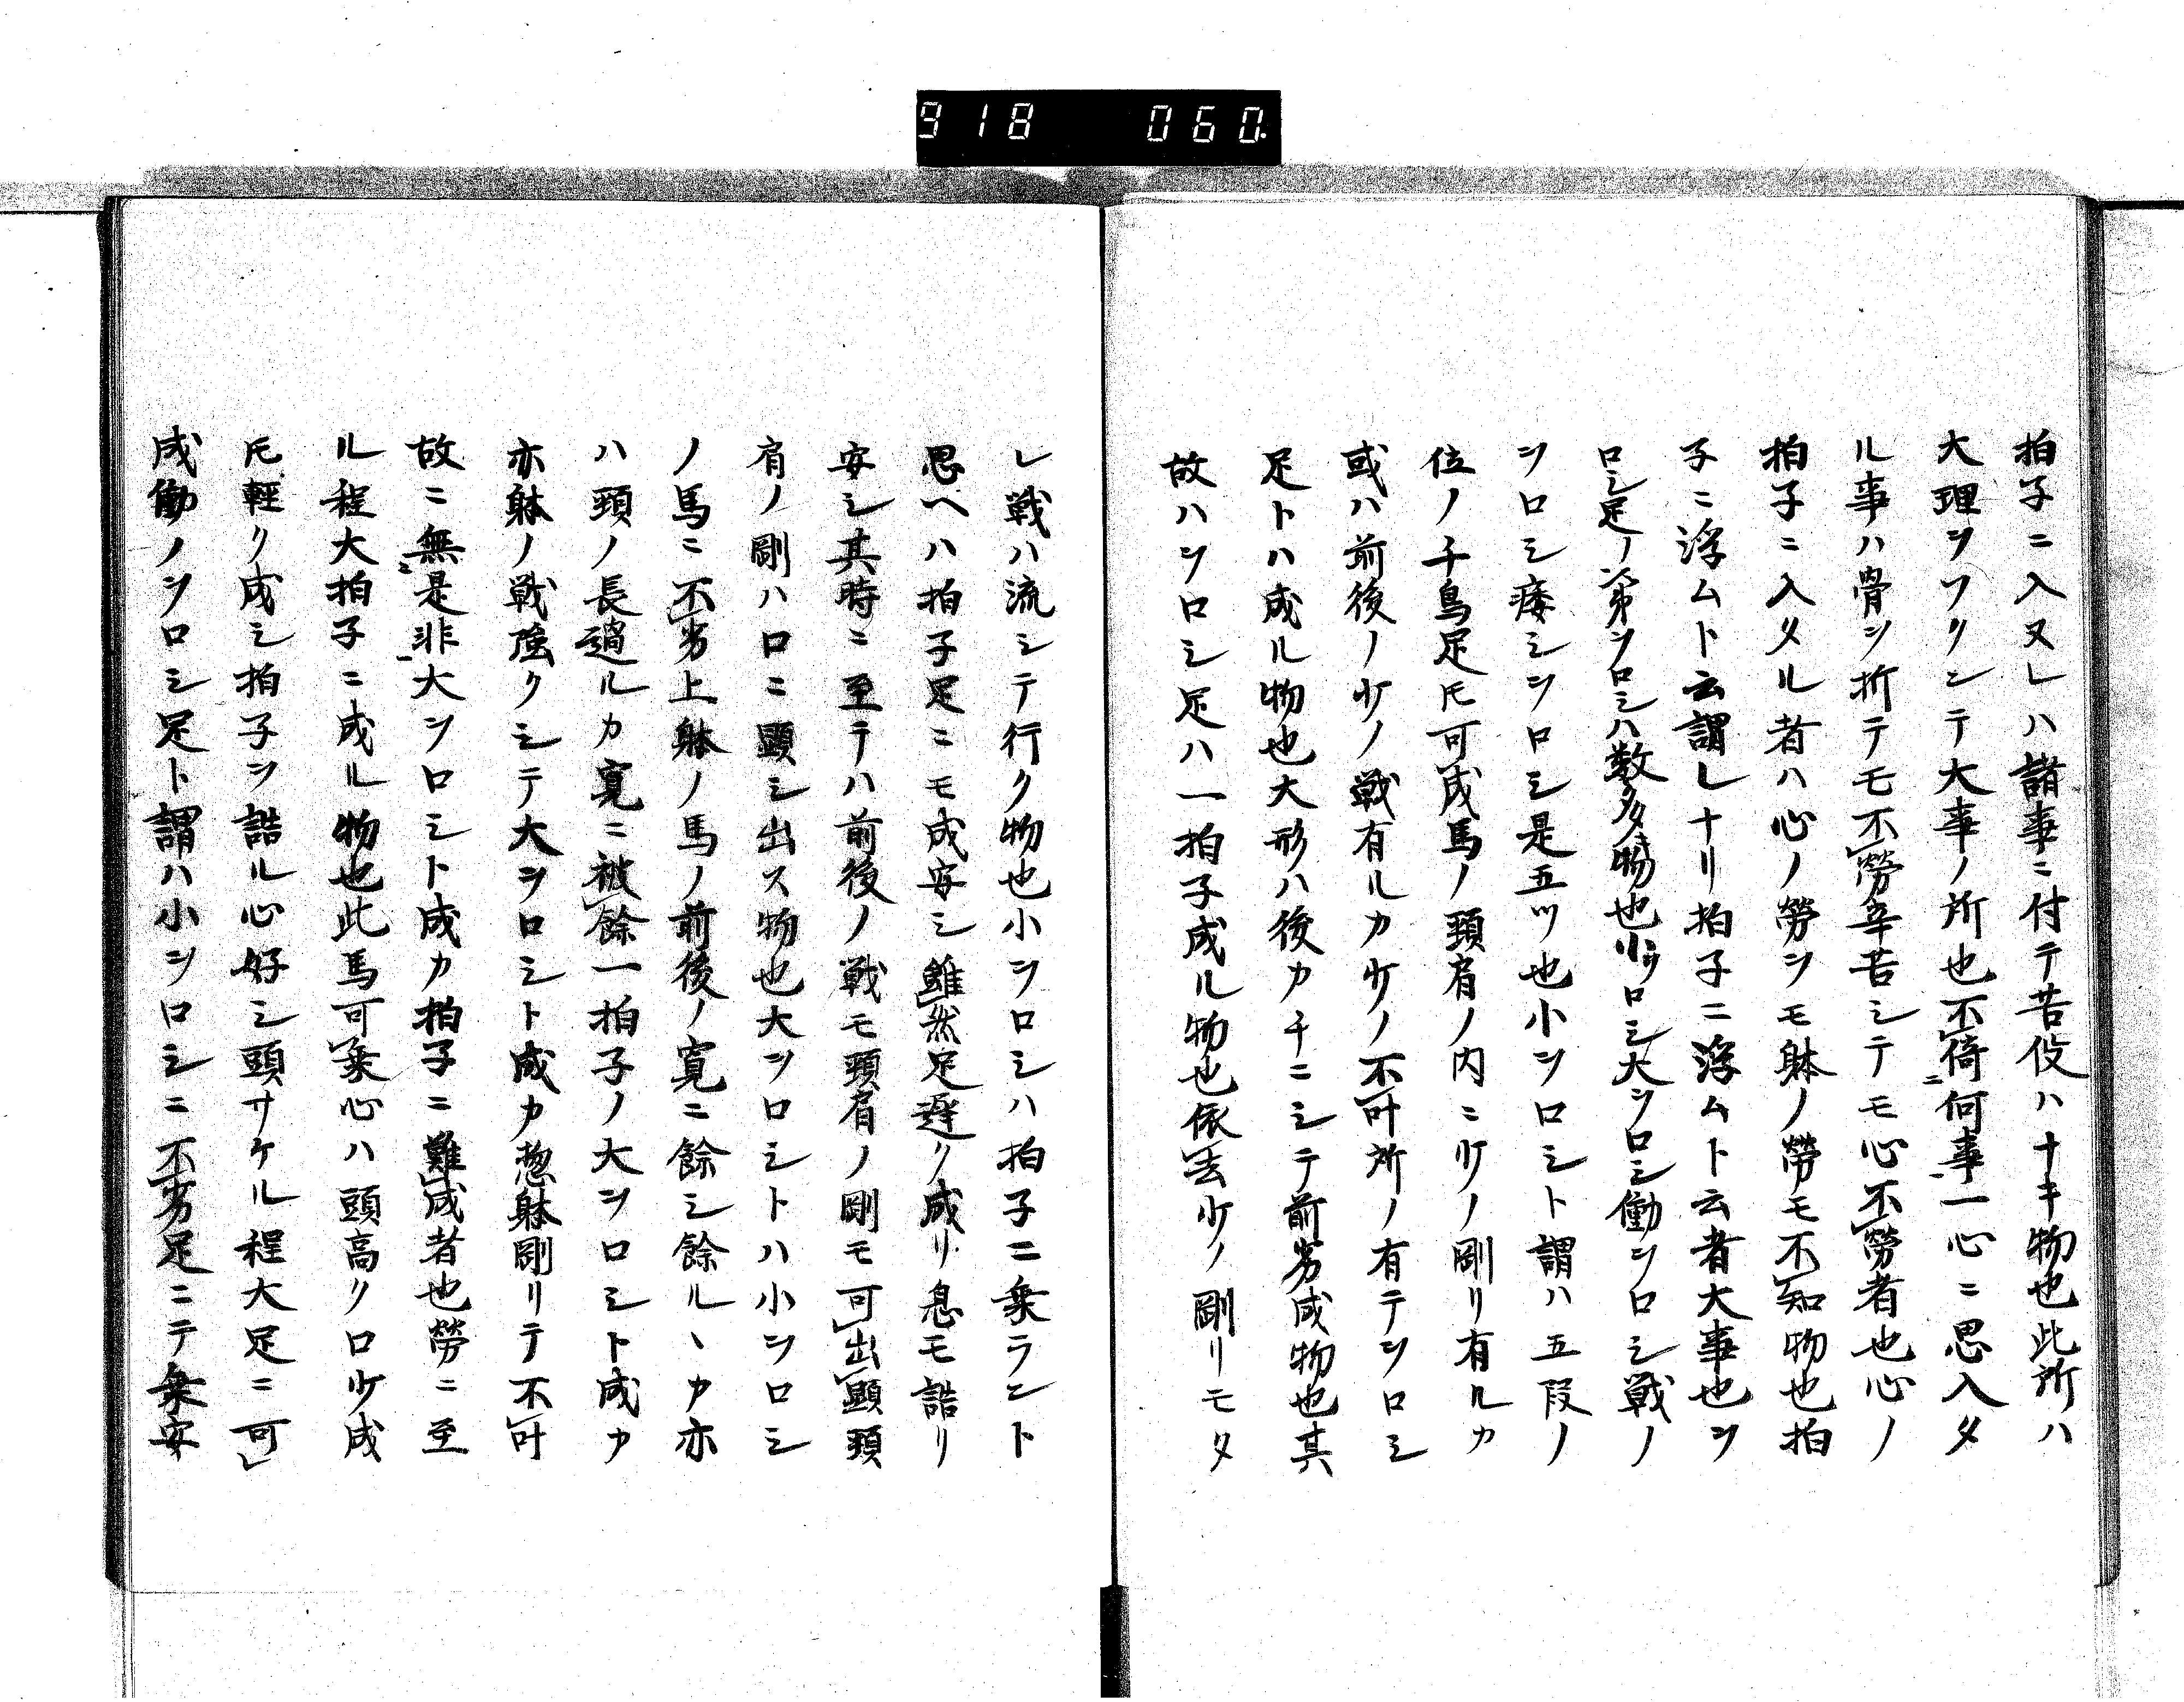 918 060.
拍子ニ入ヌレハ諸事ニ付テ苦伇ハナキ物也此所ハ
大理ヲフクシテ大事ノ所也不倚何事一心ニ思入タ
ル事ハ骨ヲ折テモ不労辛苦シテモ心不労者也心ノ
拍子ニ入タル者ハ心ノ労ヲモ躰ノ労モ不知物也拍
子ニ浮ムト云謂レナリ拍子ニ浮ムト云者大事也ヲ
ロシ足ノ次第ヲロシハ数多物也小ヲロシ大ヲロシ働ヲロシ戦ノ
ヲロシ痿シヲロシ是五ツ也小ヲロシト謂ハ五段ノ
位ノ千鳥足圧可成馬ノ頸肩ノ内ニ少ノ剛リ有ルカ
或ハ前後ノ少ノ戦有ルカ少ノ不叶所ノ有テヲロシ
足トハ成ル物也大形ハ後カチニシテ前劣成物也其
故ハヲロシ足ハ一拍子成ル物也依去少ノ剛リモタ
レ戦ハ流シテ行ク物也小ヲロシハ拍子ニ乗ラント
思ヘハ拍子足ニモ成安シ雖然足遅ク成リ息モ詰リ
安シ其時ニ至テハ前後ノ戦モ頸肩ノ剛モ可出顕頸
肩ノ剛ハ口ニ顕シ出ス物也大ヲロシトハ小ヲロシ
ノ馬ニ不劣上躰ノ馬ノ前後ノ寛ニ餘シ餘ルヽカ亦
ハ頸ノ長過ルカ寛ニ被餘一拍子ノ大ヲロシト成カ
亦躰ノ戦強クシテ大ヲロシト成カ惣躰剛リテ不叶
故ニ無是非大ヲロシト成カ拍子ニ難成者也労ニ至
ル程大拍子ニ成ル物也此馬可乗心ハ頭高ク口少成
圧軽ク成シ拍子ヲ詰ル心好シ頭サケル程大足ニ可
成働ノヲロシ足ト謂ハ小ヲロシニ不劣足ニテ乗安